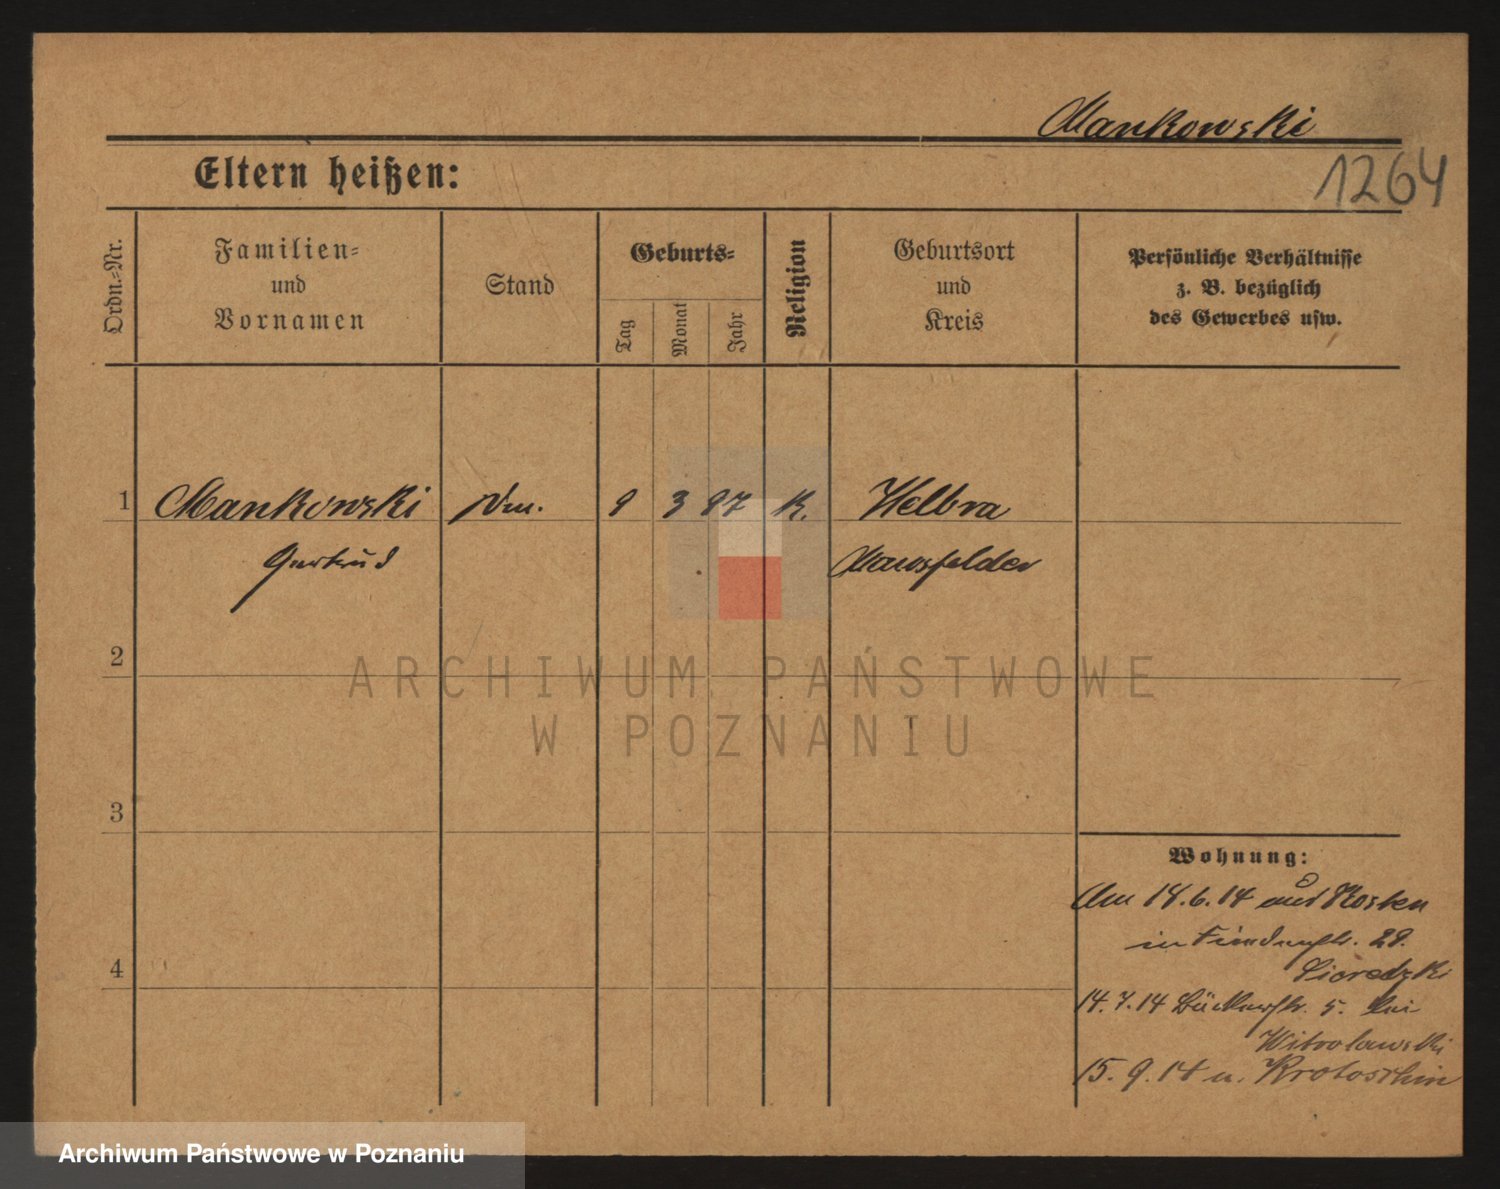 Mankowski
1264
Eltern heißen:
Ordn.-Nr.
Familien-
und
Vornamen
Stand
Geburts-
Tag
Monat
Jahr
Religion
Geburtsort
und
Kreis
Persönliche Verhältnisse
z. B. bezüglich
des Gewerbes usw.
1 Mankowski 9 3 97 K. Helbra
Gertrud Mansfelder
2
ARCHIWUM PAŃSTWOWE
W POZNANIU
3
Wohnung:
Am 14.6.14 aus Kosten
in 29.
Sieredzki
4
14.7.14 5. bei
15.9.14 n. Krotoschin
Archiwum Państwowe w Poznaniu